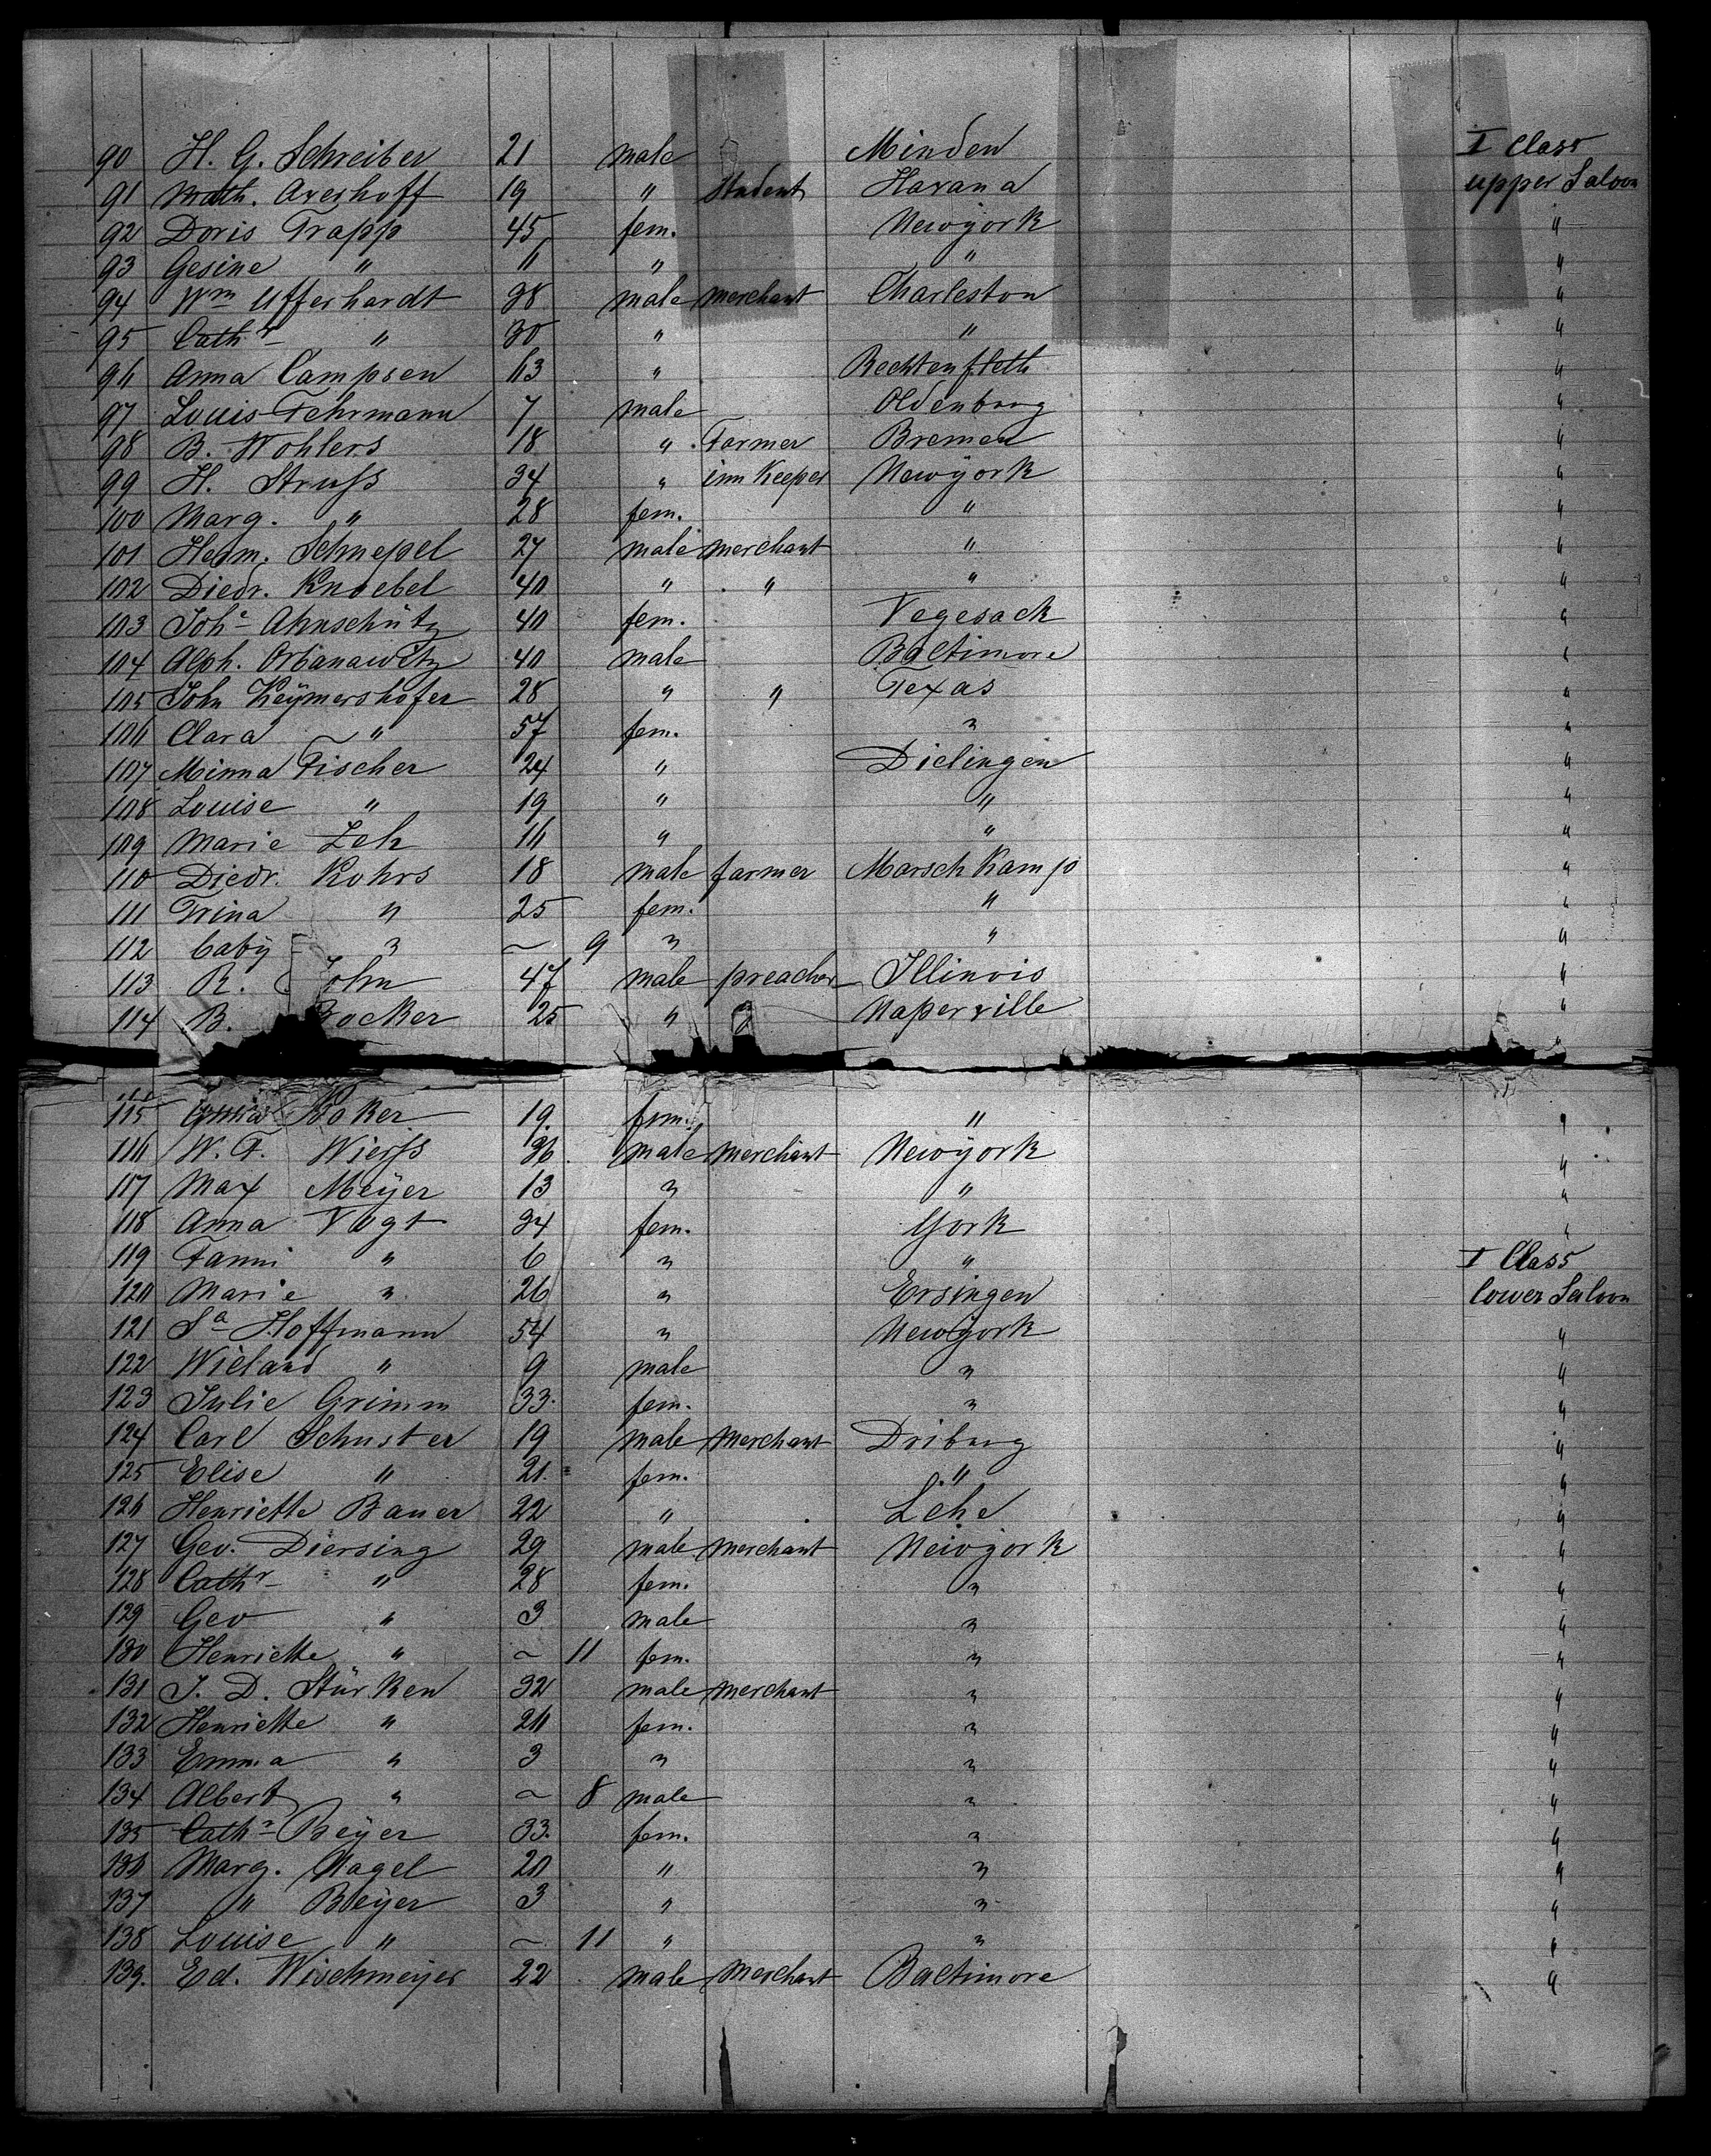 90 H. G. Schreiber 21 male Minden I Class
91 Math. Averhoff 19 " Student Havana upper Saloon
92 Doris Trapp 45 fem. Newyork "
93 Gesine " 11 " " "
94 Wm Ufferhardt 38 male merchant Charleston "
95 Cathr " 30 " " "
96 Anna Campsen 63 " Rechtenfleth "
97 Louis Fehrmann 7 male Oldenburg "
98 B. Wohlers 18 " Farmer Bremen "
99 H. Struss 34 " inn Keeper Newyork "
100 Marg. " 28 fem. " "
101 Herm. Schnepel 27 male merchant " "
102 Diedr. Knoebel 40 " " " "
103 Johe Ahnschütz 40 fem. Vegesack "
104 Alph. Orbanawitz 40 male Baltimore "
105 John Keymershofer 28 " " Texas "
106 Clara " 57 fem. " "
107 Minna Fischer 24 " Dielingen "
108 Louise " 19 " " "
109 Marie Zeh 16 " " "
110 Diedr. Kohrs 18 male farmer Marsch Kamp "
111 Trina " 25 fem. " "
112 baby " ~ 9 " " "
113 R. John 47 male preacher Illinois "
114 B. Bocker 25 " Naperville "
115 Boker 19. fem. " "
116 W. F. Wierss 36 male merchant Newyork "
117 Max Meyer 13 " " "
118 Anna Vogt 34 fem. York "
119 Fanni " 6 " " I Class
120 Marie " 26 " Ersingen lower Saloon
121 Sa Hoffmann 54 " Newyork "
122 Wieland " 9 male " "
123 Julie Grimm 33. fem. " "
124 Carl Schuster 19 male merchant Driburg "
125 Elise " 21. fem. " "
126 Henriette Bauer 22 " Lehe "
127 Geo. Diersing 29 male merchant Newyork "
128 Cathr " 28 fem. " "
129 Geo " 3 male " "
130 Henriette " ~ 11 fem. " "
131 J. D. Stürken 32 male merchant " "
132 Henriette " 26 fem. " "
133 Emma " 3 " " "
134 Albert " ~ 8 male " "
135 Cathr Beyer 33. fem. " "
136 Marg. Nagel 20 " " "
137 " Beyer 3 " " "
138 Louise " ~ 11 " " "
139. Ed. Wischmeyer 22 male merchant Baltimore "